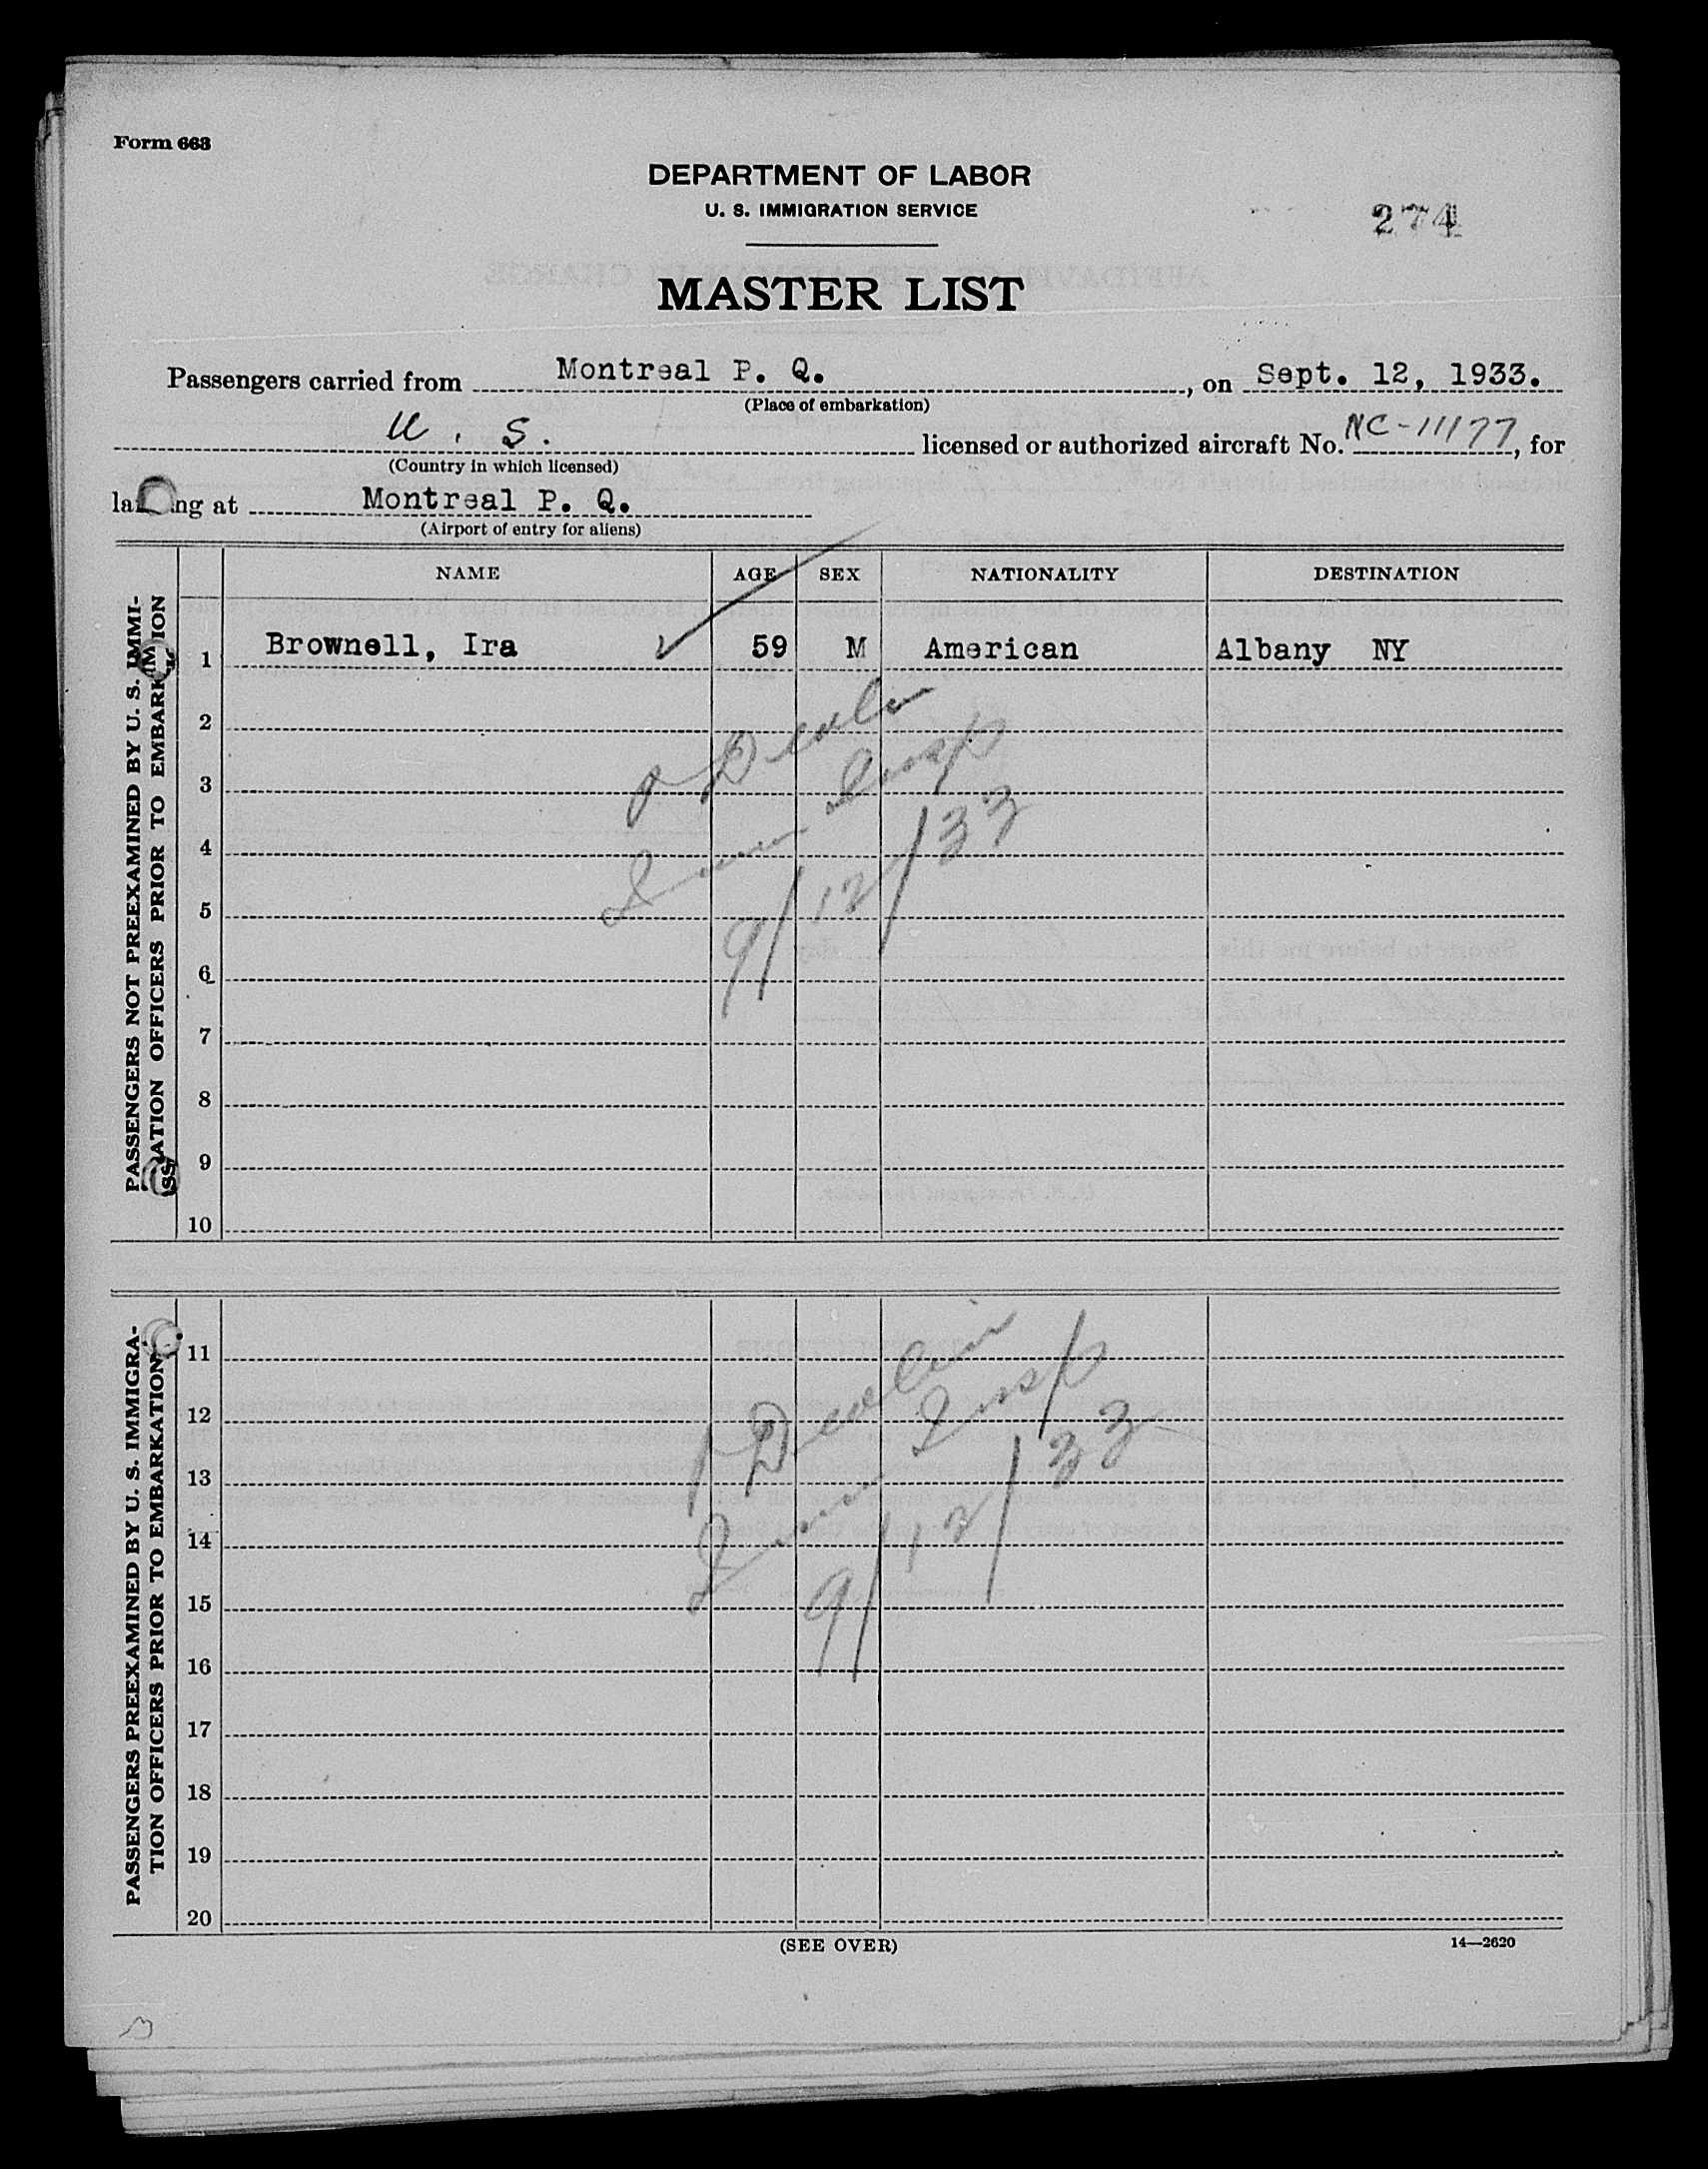 Form 663
DEPARTMENT OF LABOR
U. S. IMMIGRATION SERVICE
274
MASTER LIST
Passengers carried from Montreal P. Q., on Sept. 12, 1933.
(Place of embarkation)
U. S. licensed or authorized aircraft No. NC-11177, for
(Country in which licensed)
landing at Montreal P. Q.
(Airport of entry for aliens)
NAME AGE SEX NATIONALITY DESTINATION
PASSENGERS NOT PREEXAMINED BY U. S. IMMI-
GRATION OFFICERS PRIOR TO EMBARKATION
1 Brownell, Ira 59 M American Albany NY
2
3
4
5
6
7
8
9
10
Devlin
Imm Insp
9/12/33
PASSENGERS PREEXAMINED BY U. S. IMMIGRA-
TION OFFICERS PRIOR TO EMBARKATION
11
12
13
14
15
16
17
18
19
20
Devlin
Imm Insp
9/12/33
(SEE OVER)
14—2620